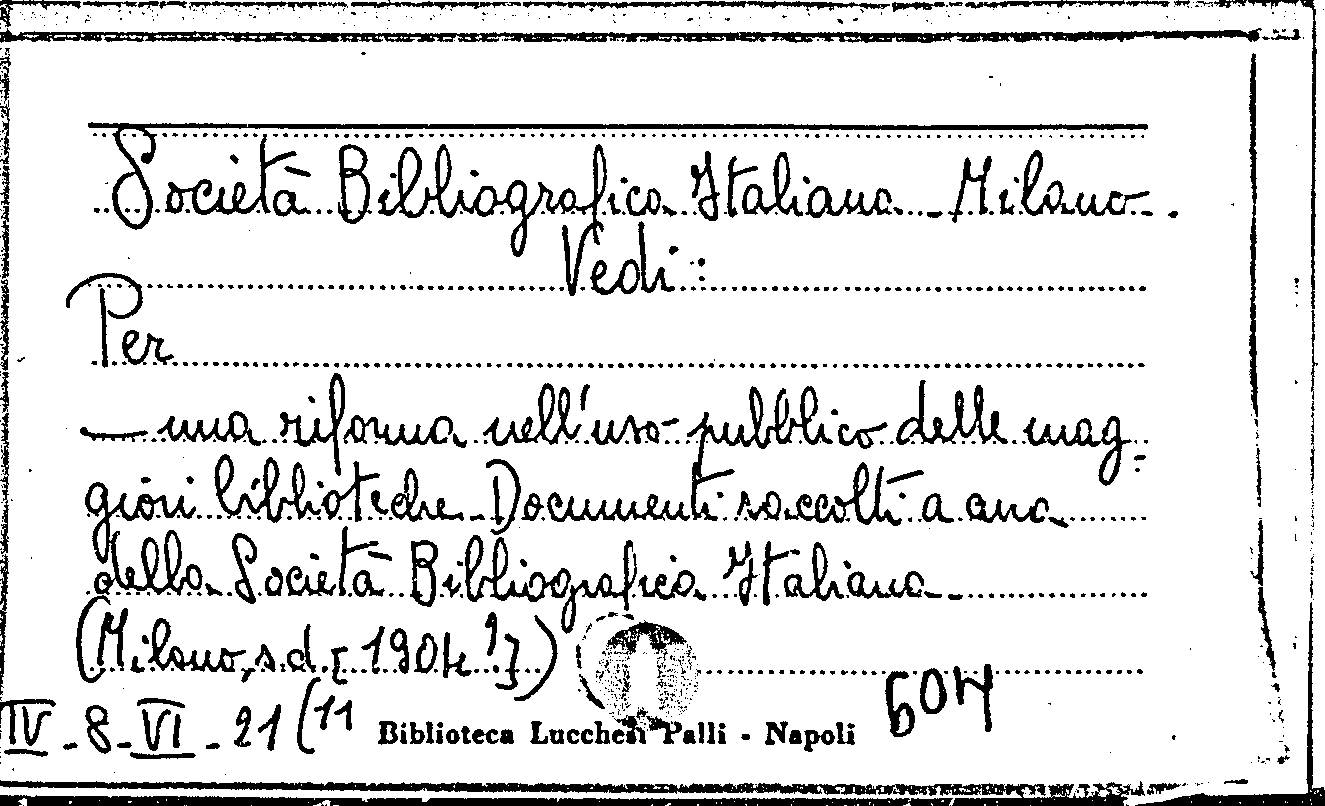 Società Bibliografica Italiana - Milano.
Vedi:
Per
— una riforma nell'uso pubblico delle mag=
giori biblioteche - Documenti raccolti a cura
della Società Bibliografica Italiana -
(Milano, s.d. [1904?])
IV - 8 - VI - 21 (11
Biblioteca Lucchesi Palli - Napoli